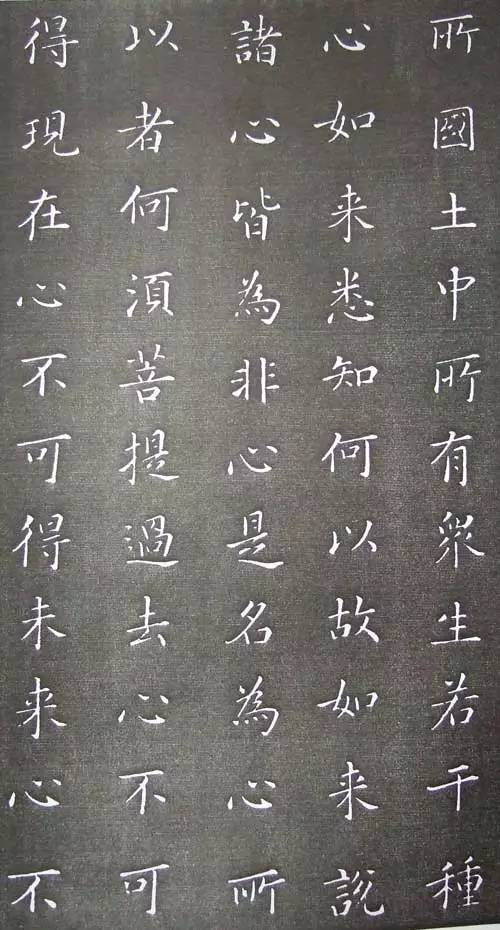 所國土中所有衆生若干種
心如来悉知何以故如来說
諸心皆為非心是名為心所
以者何須菩提過去心不可
得現在心不可得未来心不